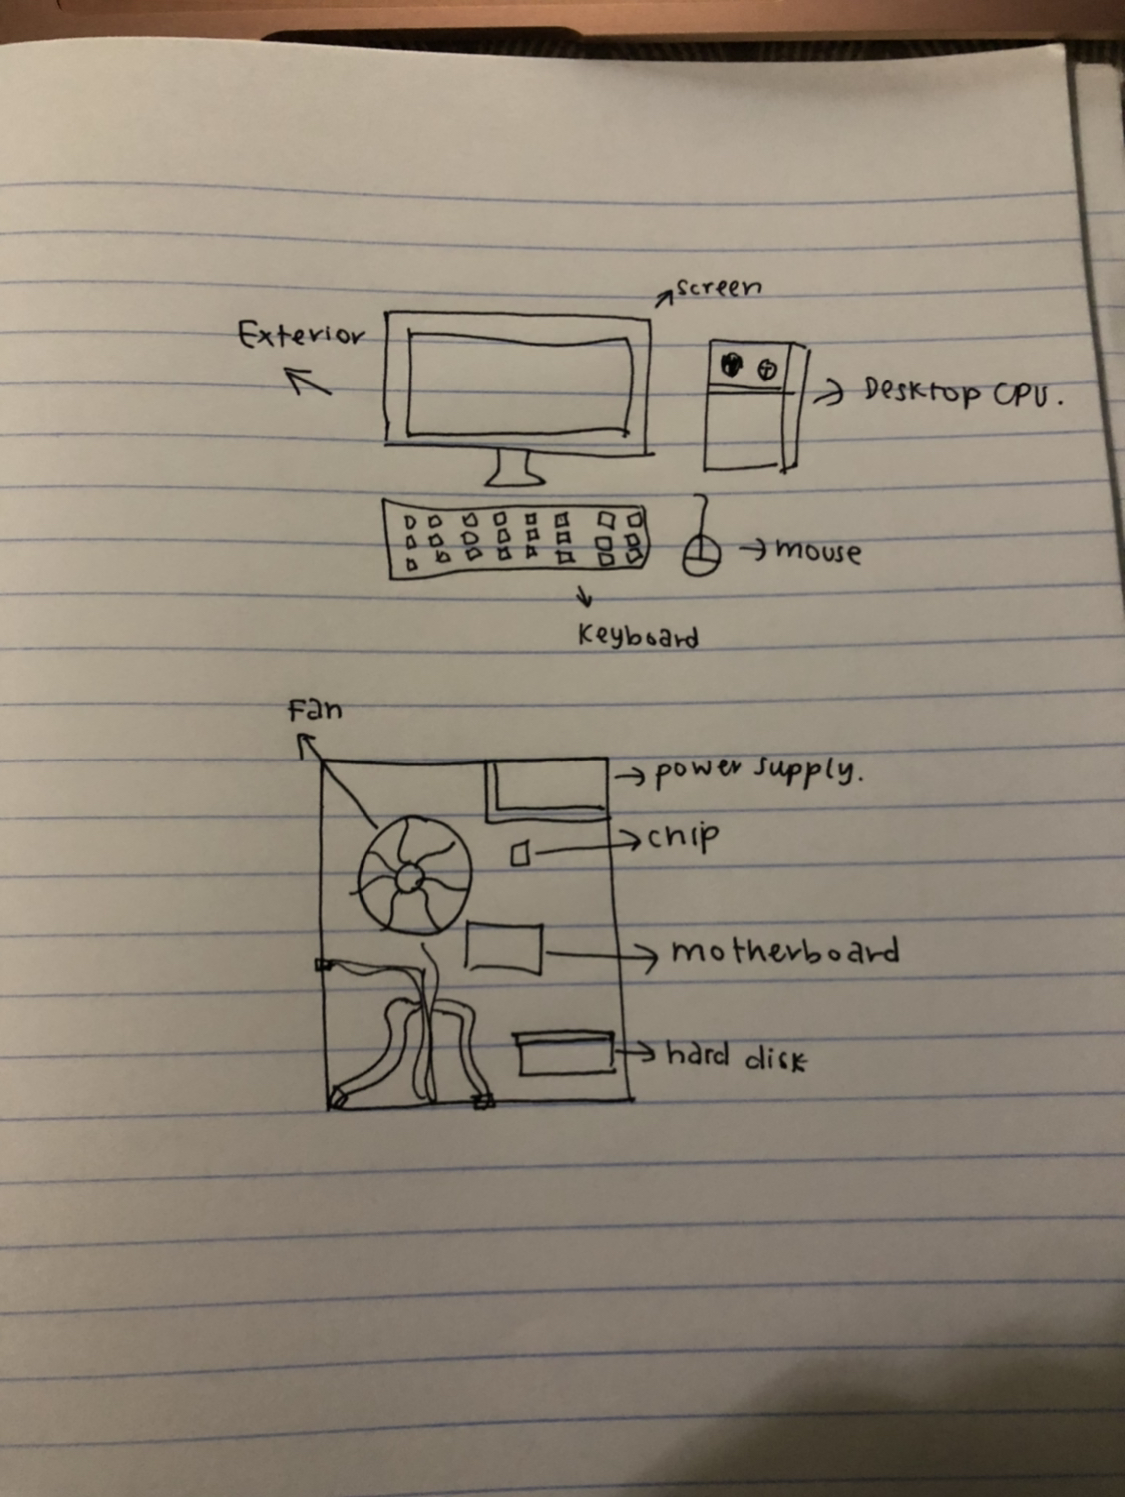 screen
Exterior
Desktop CPU.
mouse
Keyboard
Fan
power supply.
chip
motherboard
hard disk